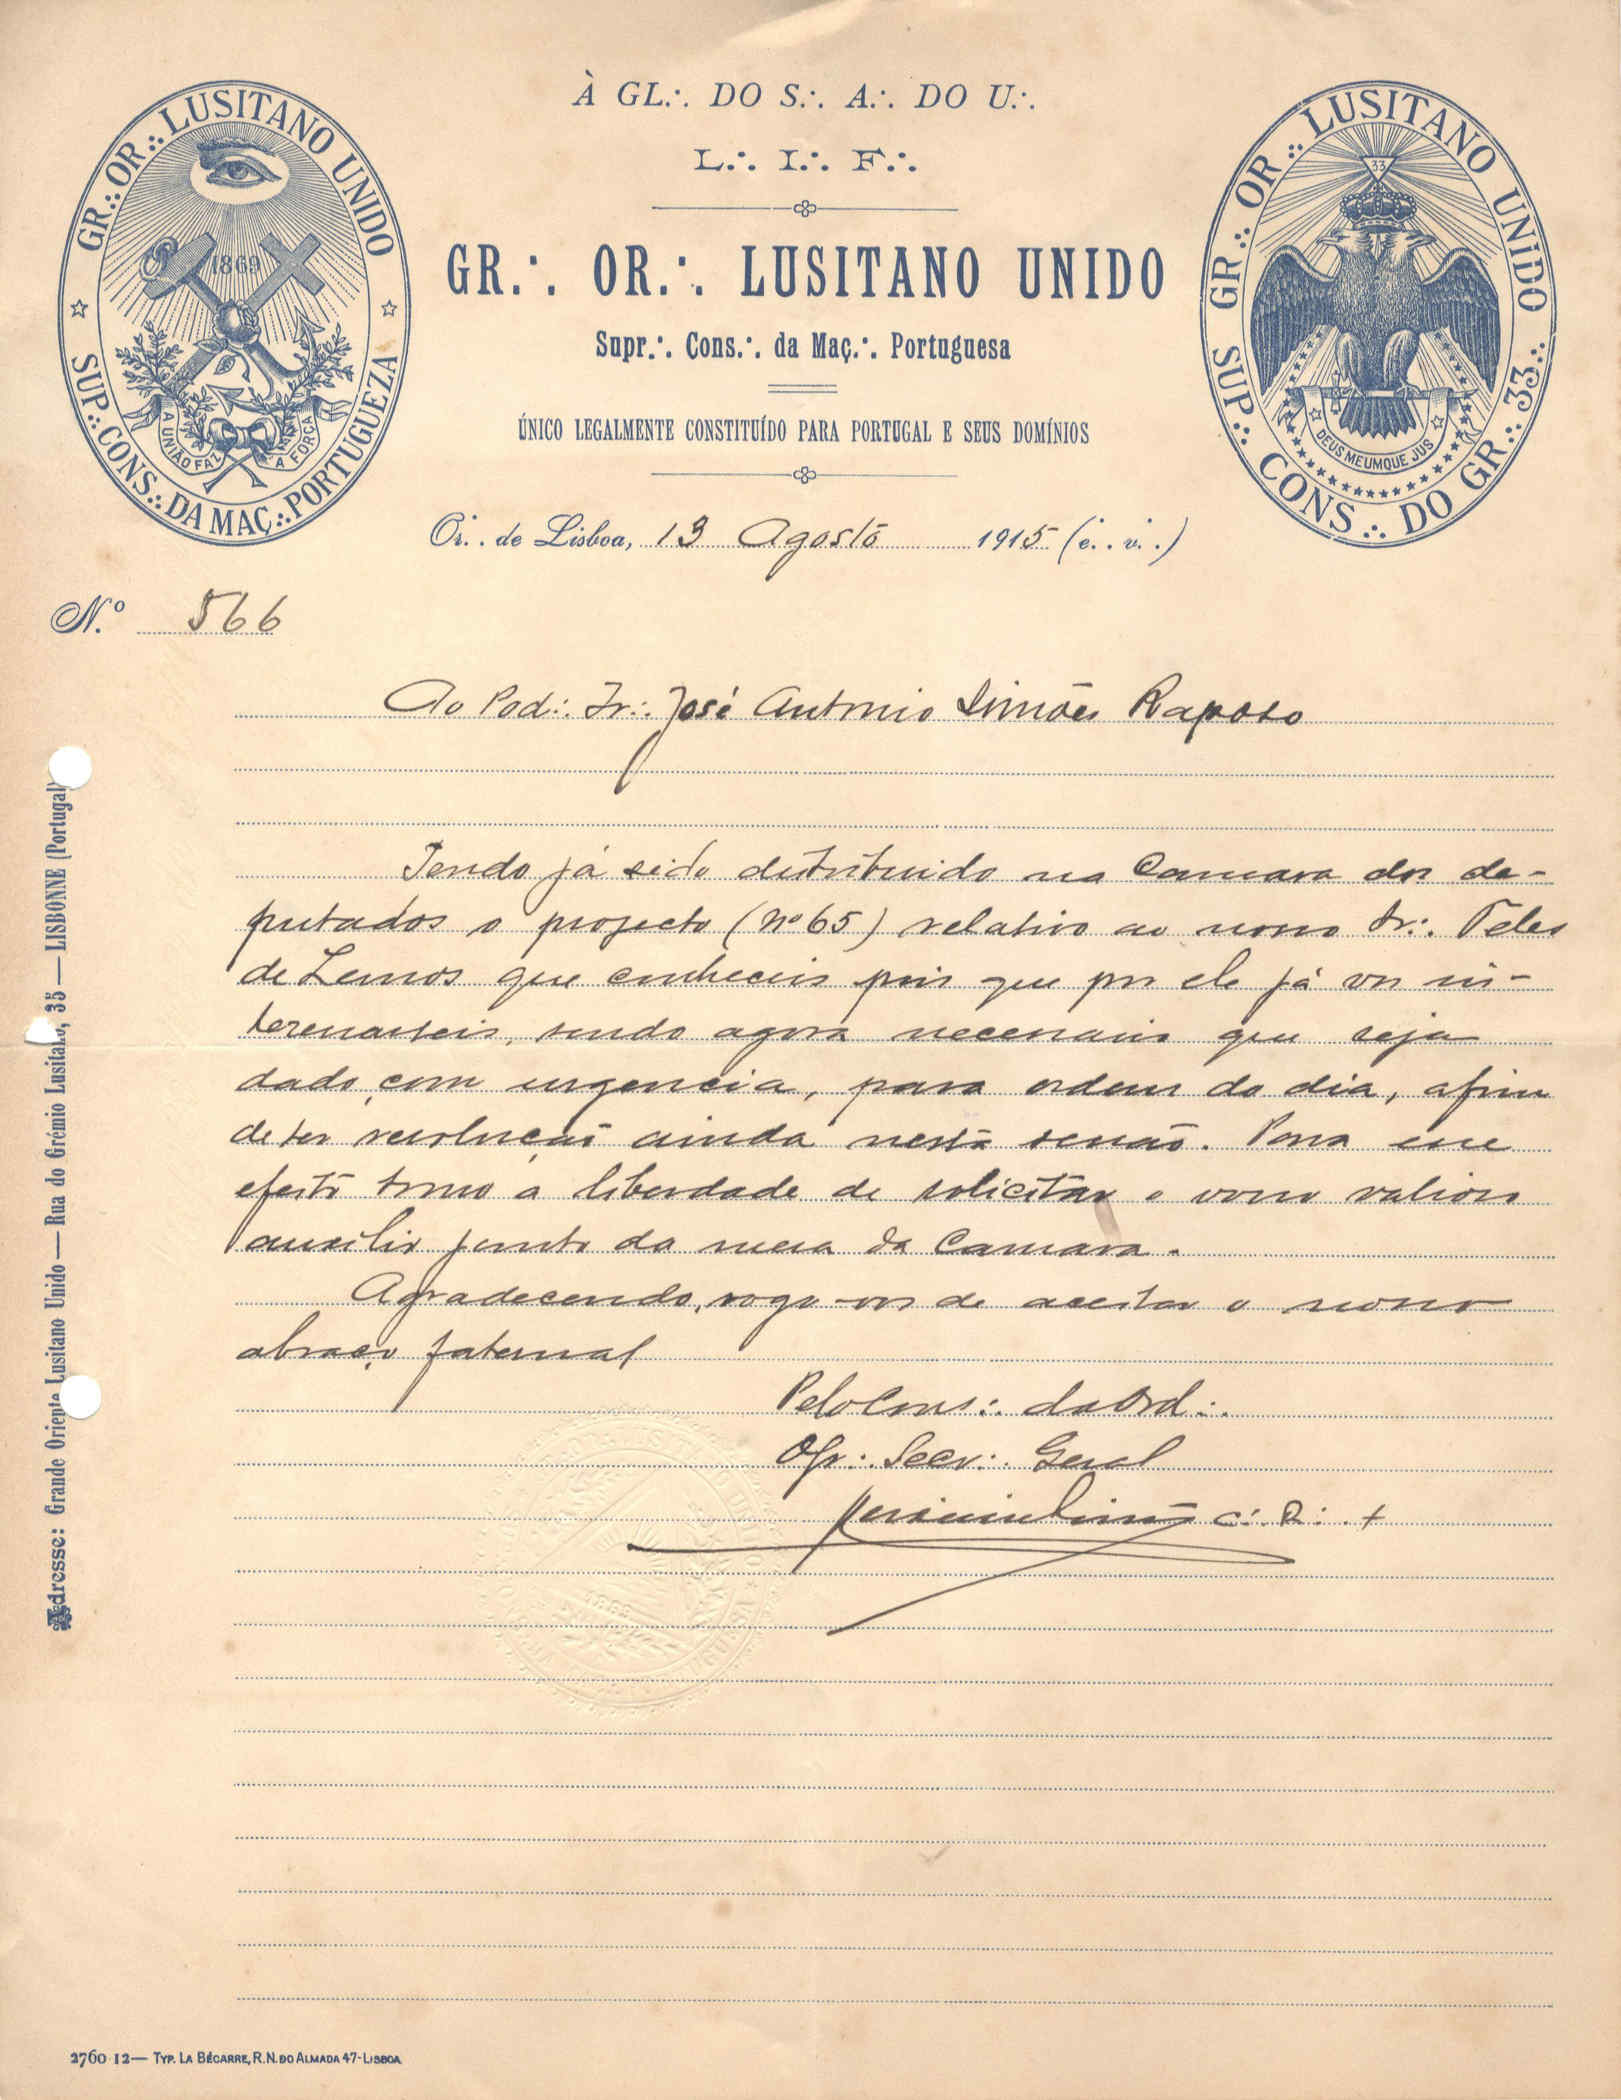 À GL∴ DO S∴ A∴ DO U∴
L∴ I∴ F∴
GR∴ OR∴ LUSITANO UNIDO
Supr∴ Cons∴ da Maç∴ Portuguesa
ÚNICO LEGALMENTE CONSTITUÍDO PARA PORTUGAL E SEUS DOMÍNIOS
GR∴ OR∴ LUSITANO UNIDO
SUP∴ CONS∴ DA MAÇ∴ PORTUGUEZA
1869
A UNIÃO FAZ A FORÇA
GR∴ OR∴ LUSITANO UNIDO
SUP∴ CONS∴ DO GR∴ 33∴
33
DEUS MEUMQUE JUS
Or∴ de Lisboa, 13 Agosto 1915 (e∴ v∴)
N.º 566
Ao Pod∴ Ir∴ José Antonio Simões Raposo
Tendo já sido distribuido na Camara dos de-
putados o projecto (nº 65) relativo ao nosso Ir∴ Teles
de Lemos que conheceis pois que por ele já vos in-
teressasteis, sendo agora necessario que seja
dado, com urgencia, para ordem do dia, afim
de ter resolução ainda nesta sessão. Para esse
efeito tomo a liberdade de solicitar o vosso valioso
auxilio junto da mesa da Camara.
Agradecendo, rogo-vos de aceitar o nosso
abraço fraternal
Pelo Cons∴ da Ord∴
O Gr∴ Secr∴ Geral
C∴ R∴ +
Adresse: Grande Oriente Lusitano Unido — Rua do Grémio Lusitano, 35 — LISBONNE (Portugal)
2760 12— TYP. LA BÉCARRE, R. N. DO ALMADA 47-LISBOA